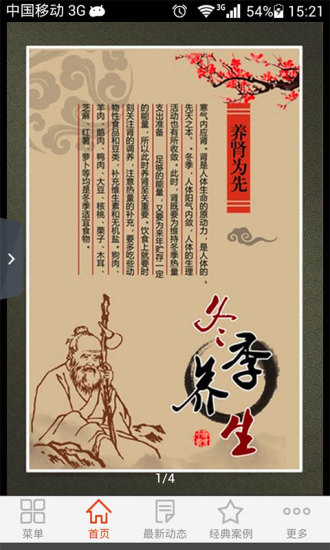 中国移动 3G
54% 15:21
养肾为先
寒气内应肾。肾是人体生命的原动力，是人体的
先天之本。"冬季，人体阳气内敛，人体的生理
活动也有所收敛。此时，肾既要为维持冬季热量
支出准备 足够的能量，又要为来年贮存一定
的能量，所以此时养肾至关重要。饮食上就要时
刻关注肾的调养，注意热量的补充，要多吃些动
物性食品和豆类，补充维生素和无机盐。狗肉、
羊肉、鹅肉、鸭肉、大豆、核桃、栗子、木耳、
芝麻、红薯、萝卜等均是冬季适宜食物。
冬季养生
1/4
菜单
首页
最新动态
经典案例
更多